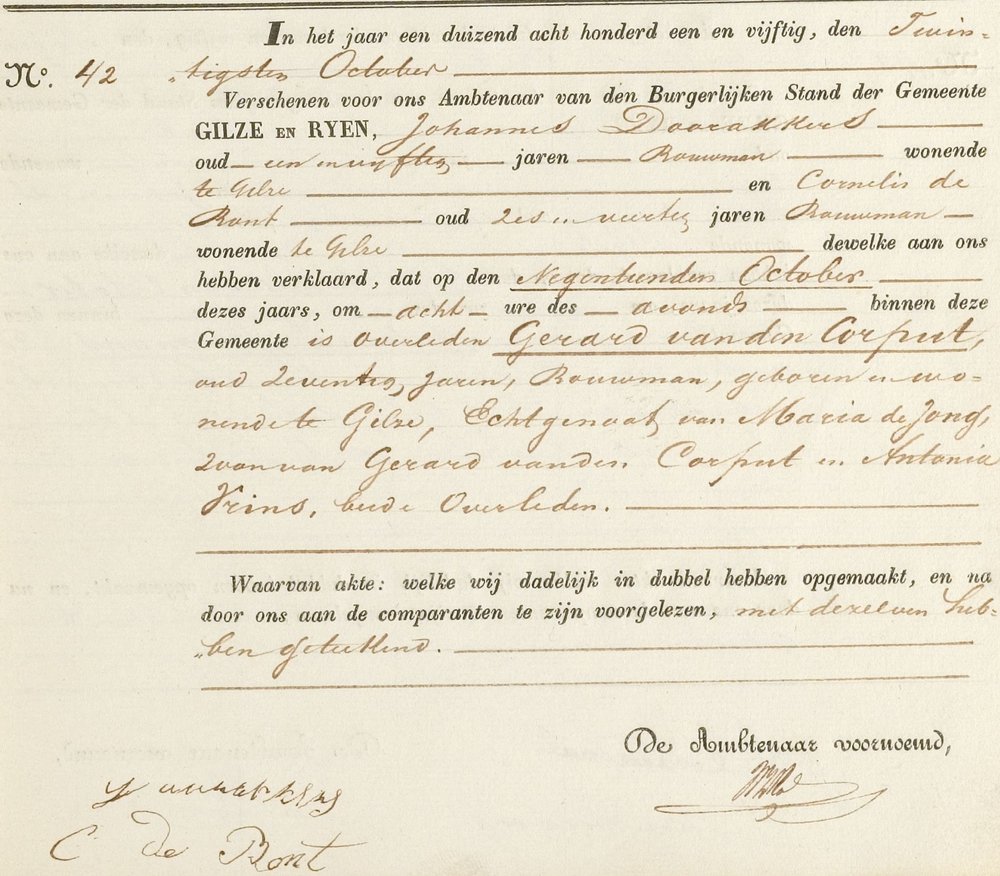 In het jaar een duizend acht honderd een en vijftig, den Twin-
No. 42 „tigsten October
Verschenen voor ons Ambtenaar van den Burgerlijken Stand der Gemeente
GILZE EN RYEN, Johannes Doorakkers
oud een en vyftig jaren Bouwman wonende
te Gilze en Cornelis de
Bont oud zes en veertig jaren Bouwman
wonende te Gilze dewelke aan ons
hebben verklaard, dat op den Negentienden October
dezes jaars, om acht ure des avonds binnen deze
Gemeente is overleden Gerard van den Corput,
oud zeventig Jaren, Bouwman, geboren en wo-
nende te Gilze, Echtgenoot van Maria de Jong,
zoon van Gerard van den Corput en Antonia
Vrins, beide Overleden.
Waarvan akte: welke wij dadelijk in dubbel hebben opgemaakt, en na
door ons aan de comparanten te zijn voorgelezen, met dezelven heb-
„ben geteekend.
De Ambtenaar voornoemd,
C de Bont